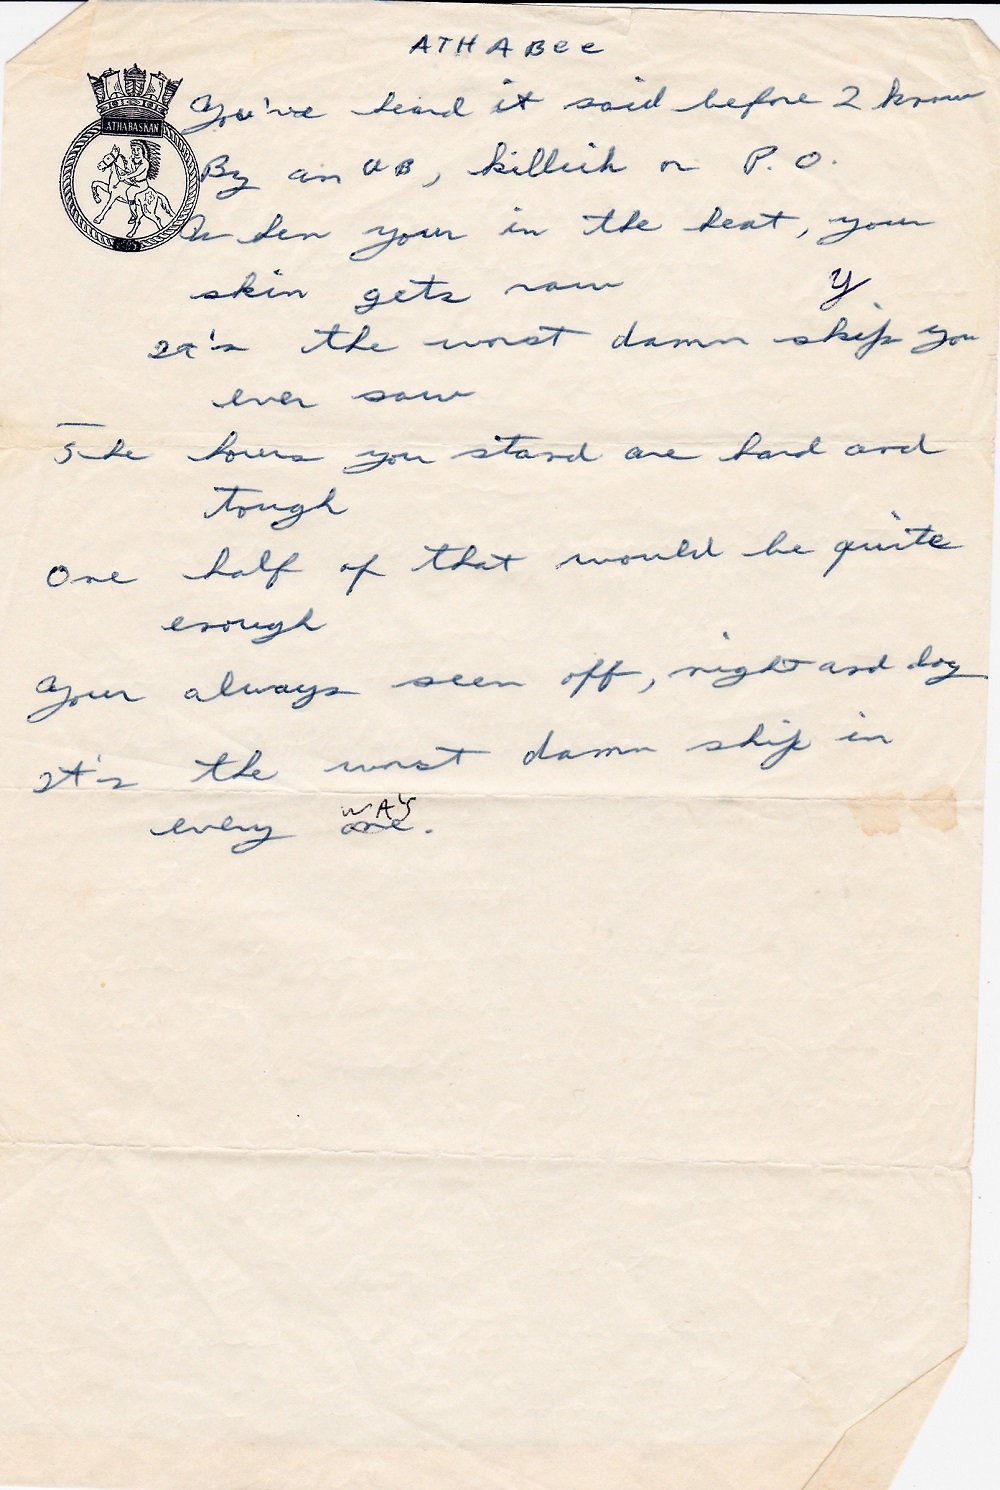 ATHABEE
ATHABASKAN
You've heard it said before I know
By an AB, killick or P.O.
When your in the heat, your
skin gets raw
y
It's the worst damn ship you
ever saw
The hours you stand are hard and
tough
One half of that would be quite
enough
Your always seen off, night and day
It's the worst damn ship in
WAY
every one.